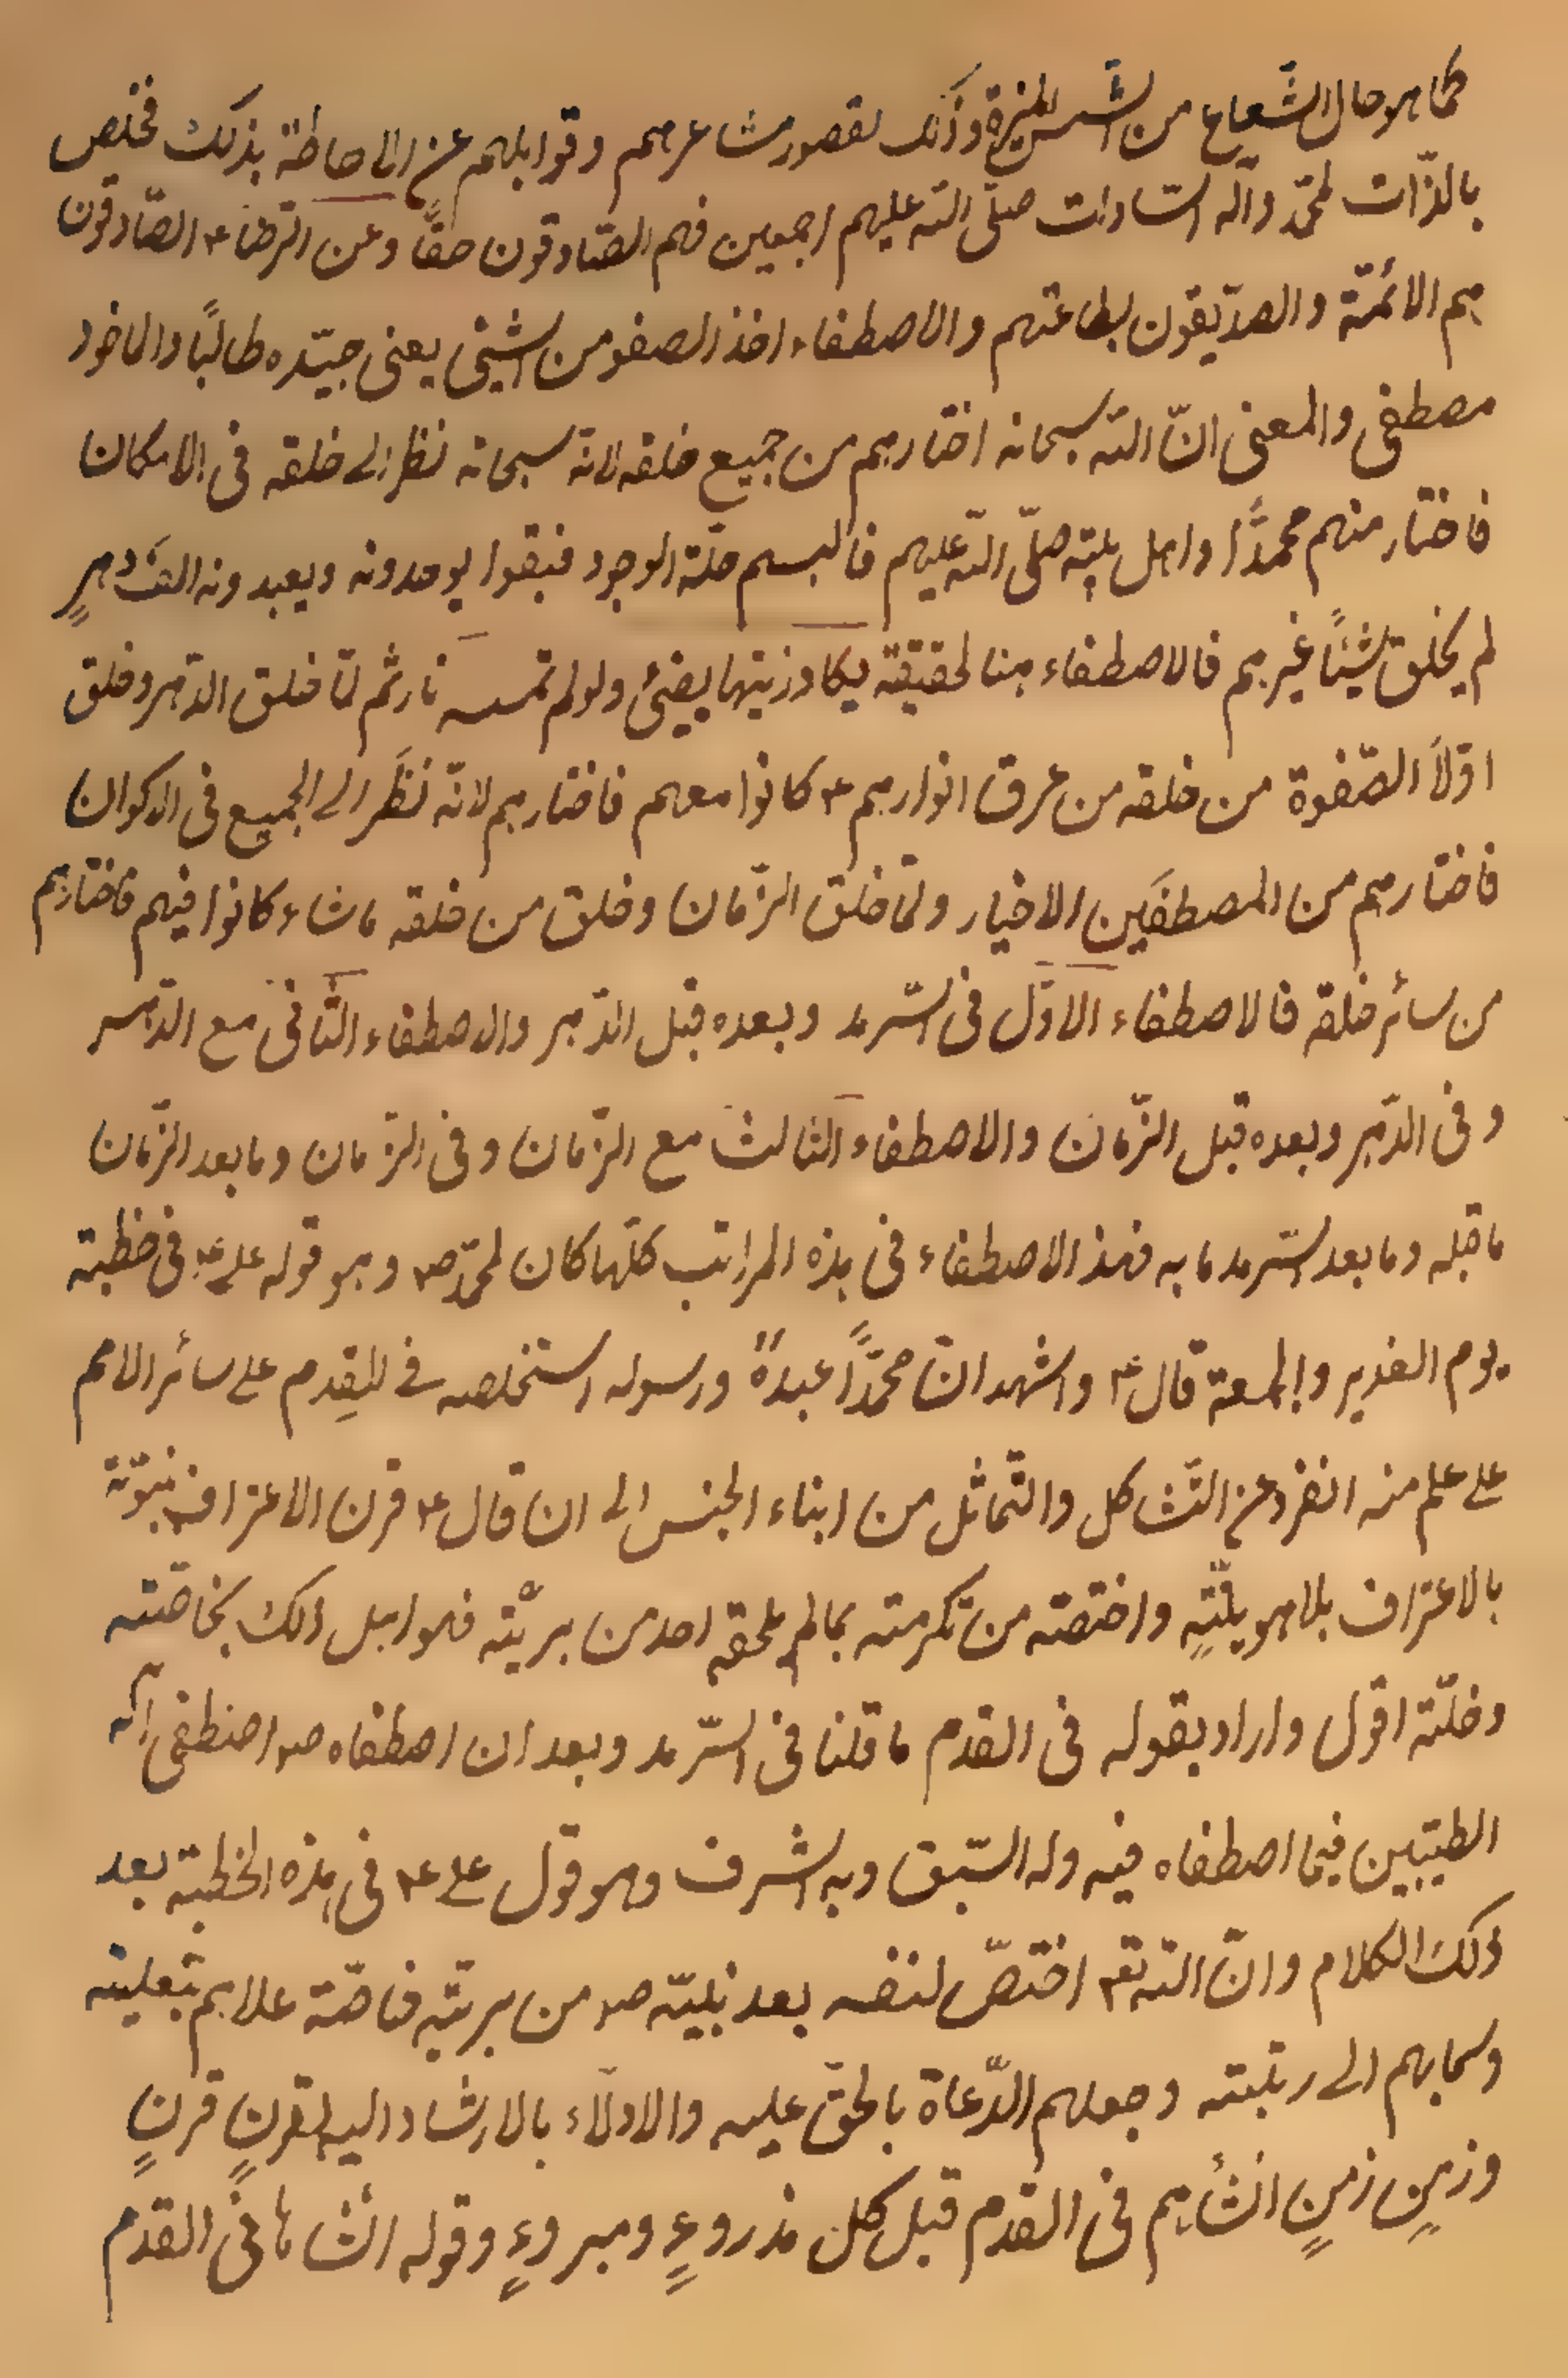 كما هو حال الشّعاع من الشّمس المنيرة وذلك لقصور مشاعرهم وقوابلهم عن الاحاطة بذلك فخلص
بالذّات لمحمّد وآله السّادات صلّى اللّه عليهم اجمعين فهم الصّادقون حقًّا وعن الرّضا ع الصّادقون
هم الائمّة والصدّيقون بطاعتهم والاصطفاء اخذ الصفو من الشيئ يعنى جيّده طالبًا والماخوذ
مصطفى والمعنى انّ اللّه سبحانه اختارهم من جميع خلقه لانه سبحانه نظر الى خلقه فى الامكان
فاختار منهم محمدًّا واهل بيته صلّى اللّه عليهم فالبسهم حلّة الوجود فبقوا يوحدونه ويعبدونه الف دهرٍ
لم يخلق شيئًا غيرهم فالاصطفاء هنا لحقيقة يكاد زيتها يضيئ ولو لم تمسسه نار ثم لمّا خلق الدّهر وخلق
اوّلاً الصّفوة من خلقه من عرق انوارهم ع كانوا معهم فاختارهم لانّه نظَر الى الجميع فى الاكوان
فاختارهم من المصطفَين الاخيار ولمّا خلق الزّمان وخلق من خلقه ما شاء كانوا فيهم فاختارهم
من سائر خلقه فالاصطفاء الاوّل فى السّرمد وبعده قبل الدّهر والاصطفاء الثّانى مع الدّهر
وفى الدّهر وبعده قبل الزّمان والاصطفاء الثالث مع الزّمان وفى الزّمان وما بعد الزّمان
ما قبله وما بعد السّرمد ما به فهذ الاصطفاء فى هذه المراتب كلّها كان لمحمّد ص وهو قوله على ع فى خطبة
يوم الغدير والجمعة قال ع واشهد انّ محمّدًا عبدهً ورسوله استخلصه فى القِدم على سائر الامم
على علم منه انفرد عن التّشاكل والتّماثل من ابناء الجنس الى ان قال ع قرن الاعتراف بنبوّته
بالاعتراف بلاهويّتهِ واختصّه من تكرمته بما لم يلحقه احد من بريّته فهو اهل ذلك بخاصّته
وخلّته اقول واراد بقوله فى القدم ما قلنا فى السّرمد وبعد ان اصطفاه ص اصطفى آله
الطيّبين فيما اصطفاه فيه وله السّبق وبه الشرف وهو قول على ع فى هذه الخطبة بعد
ذلك الكلام وانّ اللّه تع اختصّ لنفسه بعد نبيّه ص من بريّته خاصّة علاهم بتعليته
وسمابهم الى رتبته وجعلهم الدّعاة بالحقّ عليه والادلّاء بالارشاد اليه لقرنٍ قرنٍ
وزمنٍ زمنٍ انشأهم فى القدم قبل كل مذروءٍ ومبروءٍ وقوله انشاها فى القدم